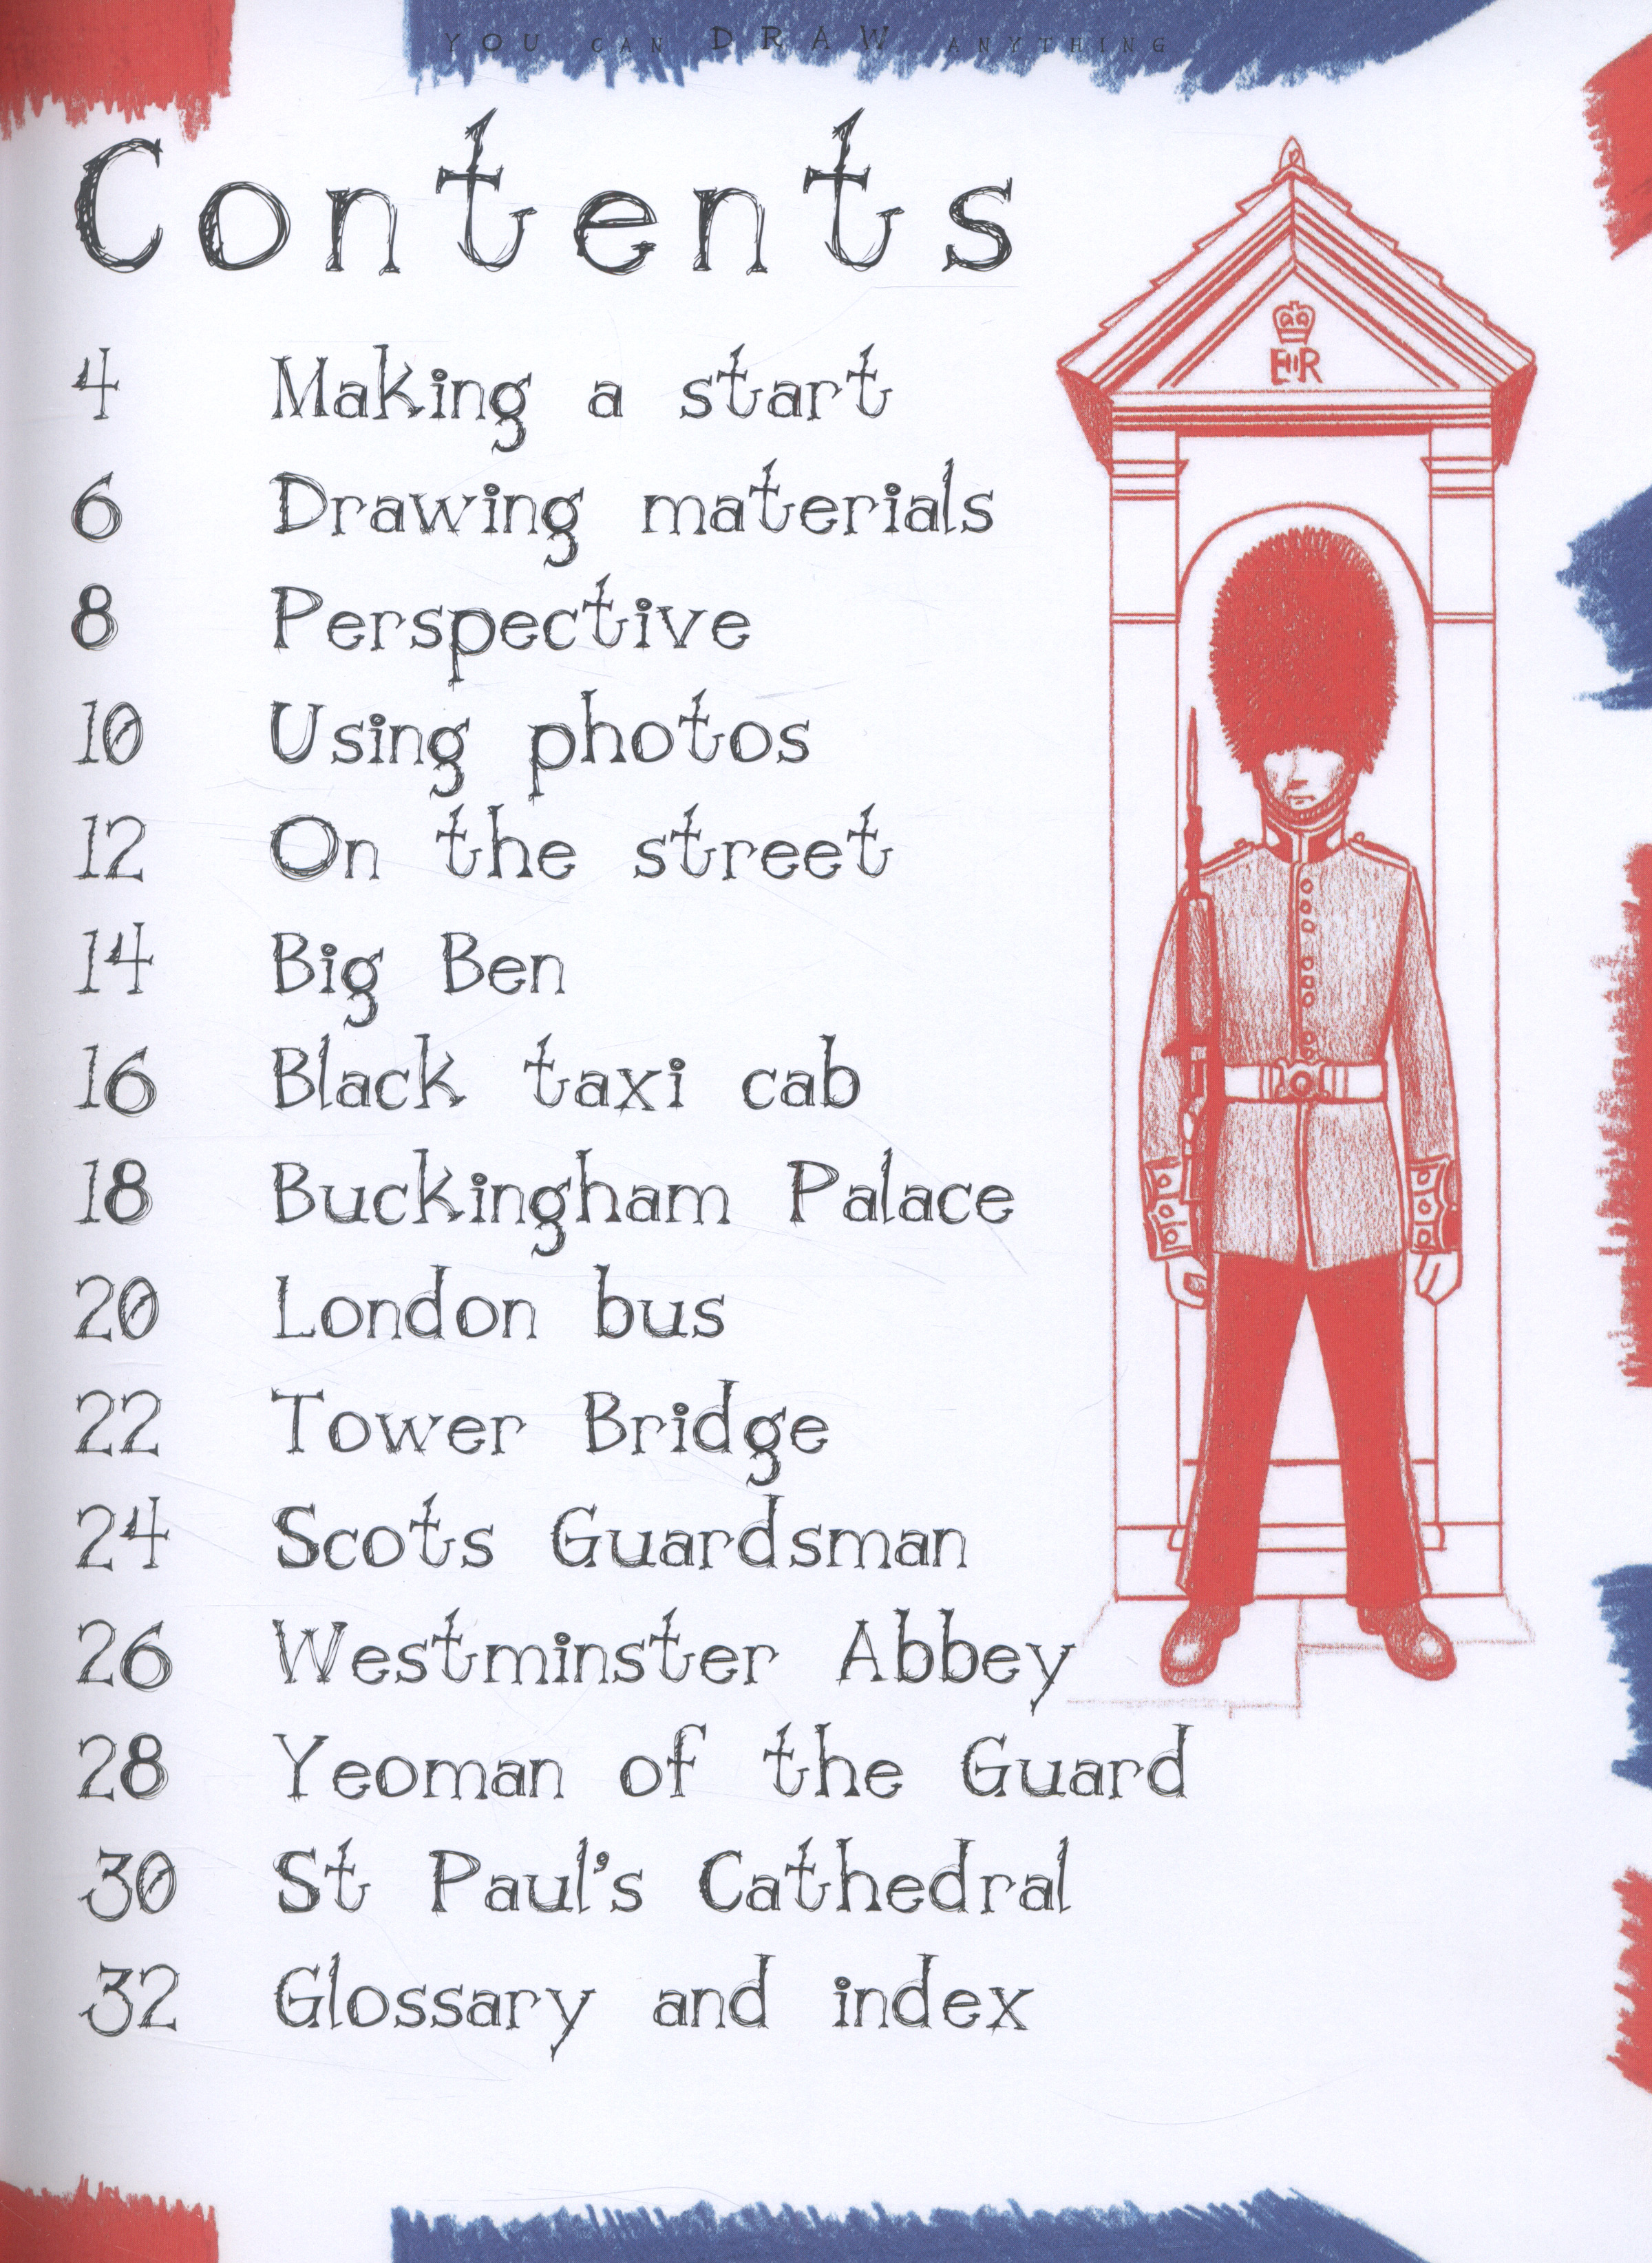 YOU CAN DRAW ANYTHING
Contents
4 Making a start
6 Drawing materials
8 Perspective
10 Using photos
12 On the street
14 Big Ben
16 Black taxi cab
18 Buckingham Palace
20 London bus
22 Tower Bridge
24 Scots Guardsman
26 Westminster Abbey
28 Yeoman of the Guard
30 St Paul's Cathedral
32 Glossary and index
EIIR